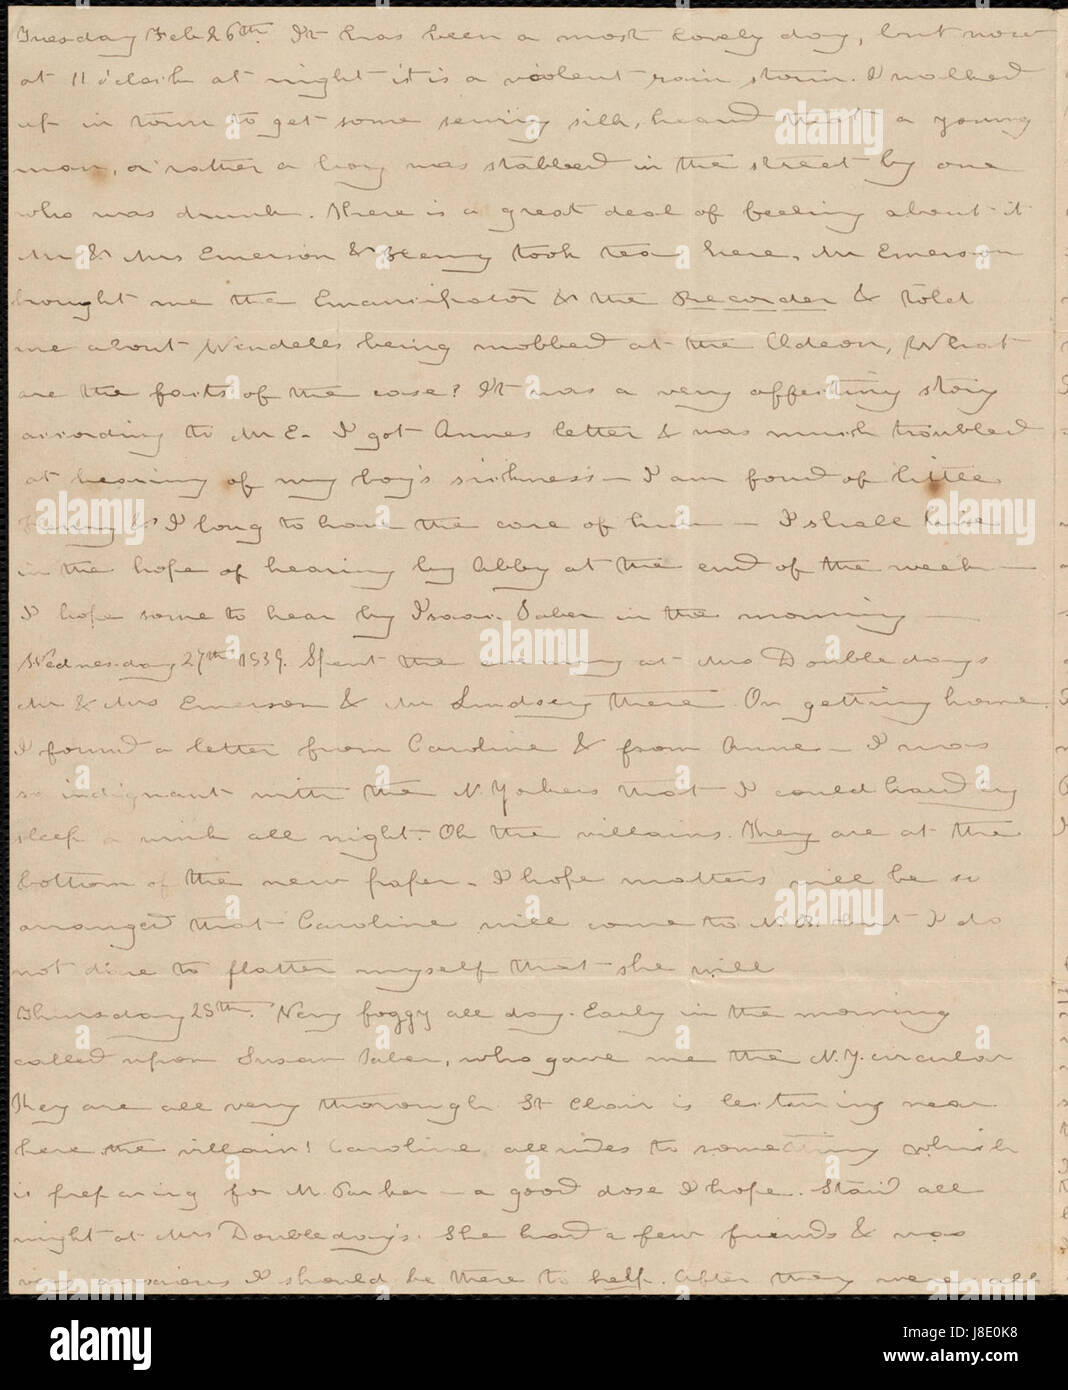 Tuesday Feb 26th. It has been a most lovely day, but now
at 11 o'clock at night it is a violent rain storm. I walked
up in town to get some sewing silk, heard that a young
man, or rather a boy was stabbed in the street by one
who was drunk. There is a great deal of feeling about it
Mr & Mrs Emerson & Henny took tea here, Mr Emerson
brought me the Emancipator & the Recorder & told
me about Wendell's being mobbed at the Odeon, What
are the facts of the case? It was a very affecting story
according to Mr E. I got Annes letter & was much troubled
at hearing of my boy's sickness — I am fond of little
Henny & I long to have the care of him — I shall live
in the hope of hearing by Abby at the end of the week —
I hope some to hear by Isaac Taber in the morning —
Wednesday 27th 1839. Spent the evening at Mrs Doubledays
Mr & Mrs Emerson & Mr Lindsey there. On getting home
I found a letter from Caroline & from Anne — I was
so indignant with the N. Yorkers that I could hardly
sleep a wink all night. Oh the villains. They are at the
bottom of the new paper. I hope matters will be so
arranged that Caroline will come to N. B. but I do
not dare to flatter myself that she will
Thursday 28th. Very foggy all day. Early in the morning
called upon Susan Taber, who gave me the N. Y. circular
They are all very thorough. St Clair is lecturing near
here, the villain! Caroline alludes to something which
is preparing for M. Parker — a good dose I hope. Staid all
night at Mrs Doubleday's. She had a few friends & was
very anxious I should be there to help. After they were all
alamy
a
alamy stock photo
J8E0K8
www.alamy.com